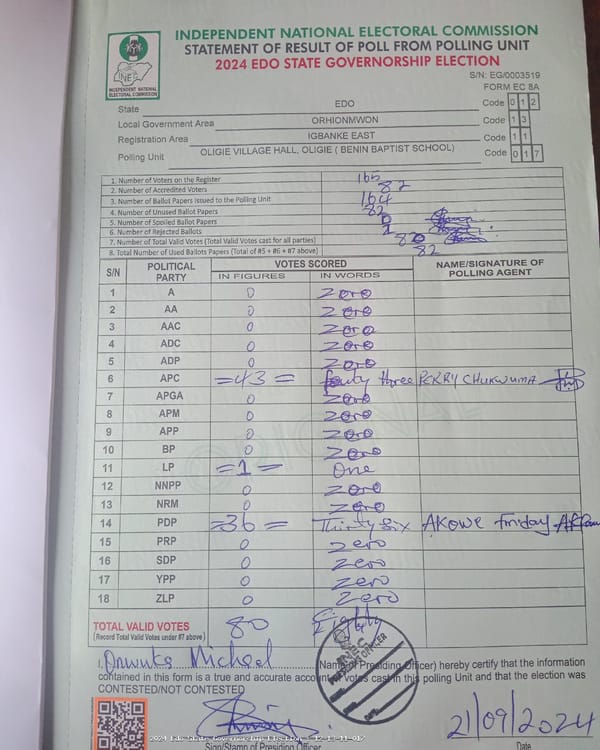 INDEPENDENT NATIONAL ELECTORAL COMMISSION
STATEMENT OF RESULT OF POLL FROM POLLING UNIT
2024 EDO STATE GOVERNORSHIP ELECTION
S/N: EG/0003519
FORM EC 8A
INEC
INDEPENDENT NATIONAL ELECTORAL COMMISSION
State EDO Code 0 1 2
Local Government Area ORHIONMWON Code 1 3
Registration Area IGBANKE EAST Code 1 1
Polling Unit OLIGIE VILLAGE HALL, OLIGIE ( BENIN BAPTIST SCHOOL) Code 0 1 7
1. Number of Voters on the Register 166
2. Number of Accredited Voters 82
3. Number of Ballot Papers issued to the Polling Unit 164
4. Number of Unused Ballot Papers 82
5. Number of Spoiled Ballot Papers
6. Number of Rejected Ballots
7. Number of Total Valid Votes (Total Valid Votes cast for all parties)
8. Total Number of Used Ballots Papers (Total of #5 + #6 + #7 above) 82
S/N POLITICAL PARTY VOTES SCORED NAME/SIGNATURE OF POLLING AGENT
IN FIGURES IN WORDS
1 A 0 Zero
2 AA 0 Zero
3 AAC 0 Zero
4 ADC 0 Zero
5 ADP 0 Zero
6 APC =43= three PERRY CHUKWUMA
7 APGA 0 Zero
8 APM 0 Zero
9 APP 0 Zero
10 BP 0 Zero
11 LP =1= One
12 NNPP 0 Zero
13 NRM 0 Zero
14 PDP =36= Thirty Six AKOWE Friday
15 PRP 0 Zero
16 SDP 0 Zero
17 YPP 0 Zero
18 ZLP 0 Zero
TOTAL VALID VOTES 80 Eighty
(Record Total Valid Votes under #7 above)
I, Onwuka Micheal (Name of Presiding Officer) hereby certify that the information
contained in this form is a true and accurate account of votes cast in this polling Unit and that the election was
CONTESTED/NOT CONTESTED
21/09/2024
Sign/Stamp of Presiding Officer Date